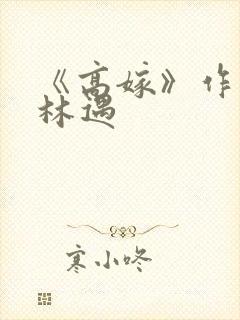 《高嫁》作
林遇
寒小咚